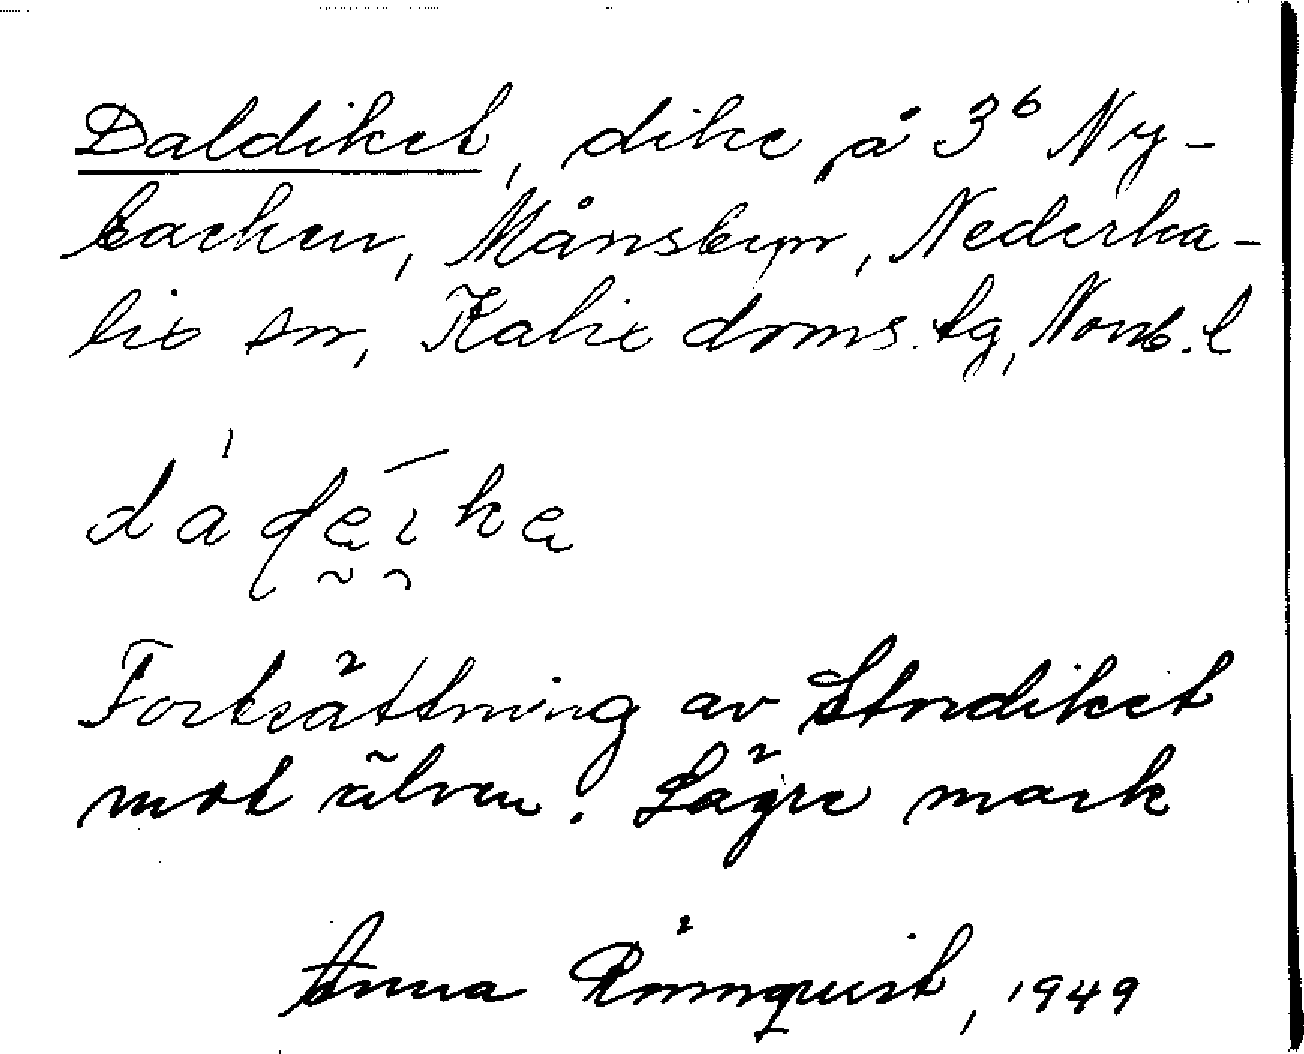 Daldiket, dike å 3⁶ Ny-
backen, Månsbyn, Nederka-
lix sn, Kalix doms.tg, Norrb. l
Fortsättning av Stordiket
mot älven. Lägre mark
Anna Rönnquist, 1949